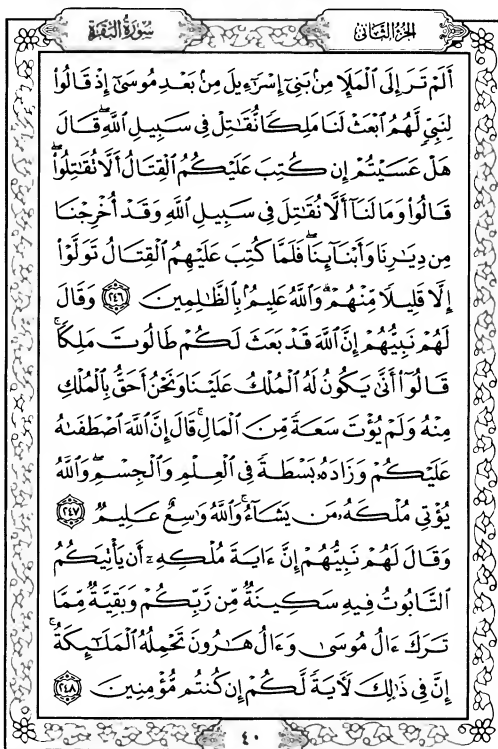 سُورَةُ البَقَرَةِ الجُزْءُ الثَّانِي
أَلَمْ تَرَ إِلَى ٱلْمَلَإِ مِنۢ بَنِىٓ إِسْرَٰٓءِيلَ مِنۢ بَعْدِ مُوسَىٰٓ إِذْ قَالُوا۟
لِنَبِىٍّ لَّهُمُ ٱبْعَثْ لَنَا مَلِكًا نُّقَٰتِلْ فِى سَبِيلِ ٱللَّهِ ۖ قَالَ
هَلْ عَسَيْتُمْ إِن كُتِبَ عَلَيْكُمُ ٱلْقِتَالُ أَلَّا تُقَٰتِلُوا۟ ۖ
قَالُوا۟ وَمَا لَنَآ أَلَّا نُقَٰتِلَ فِى سَبِيلِ ٱللَّهِ وَقَدْ أُخْرِجْنَا
مِن دِيَٰرِنَا وَأَبْنَآئِنَا ۖ فَلَمَّا كُتِبَ عَلَيْهِمُ ٱلْقِتَالُ تَوَلَّوْا۟
إِلَّا قَلِيلًا مِّنْهُمْ ۗ وَٱللَّهُ عَلِيمٌۢ بِٱلظَّٰلِمِينَ ٢٤٦ وَقَالَ
لَهُمْ نَبِيُّهُمْ إِنَّ ٱللَّهَ قَدْ بَعَثَ لَكُمْ طَالُوتَ مَلِكًا ۚ
قَالُوٓا۟ أَنَّىٰ يَكُونُ لَهُ ٱلْمُلْكُ عَلَيْنَا وَنَحْنُ أَحَقُّ بِٱلْمُلْكِ
مِنْهُ وَلَمْ يُؤْتَ سَعَةً مِّنَ ٱلْمَالِ ۚ قَالَ إِنَّ ٱللَّهَ ٱصْطَفَىٰهُ
عَلَيْكُمْ وَزَادَهُۥ بَسْطَةً فِى ٱلْعِلْمِ وَٱلْجِسْمِ ۖ وَٱللَّهُ
يُؤْتِى مُلْكَهُۥ مَن يَشَآءُ ۚ وَٱللَّهُ وَٰسِعٌ عَلِيمٌ ٢٤٧
وَقَالَ لَهُمْ نَبِيُّهُمْ إِنَّ ءَايَةَ مُلْكِهِۦٓ أَن يَأْتِيَكُمُ
ٱلتَّابُوتُ فِيهِ سَكِينَةٌ مِّن رَّبِّكُمْ وَبَقِيَّةٌ مِّمَّا
تَرَكَ ءَالُ مُوسَىٰ وَءَالُ هَٰرُونَ تَحْمِلُهُ ٱلْمَلَٰٓئِكَةُ ۚ
إِنَّ فِى ذَٰلِكَ لَءَايَةً لَّكُمْ إِن كُنتُم مُّؤْمِنِينَ ٢٤٨
٤٠